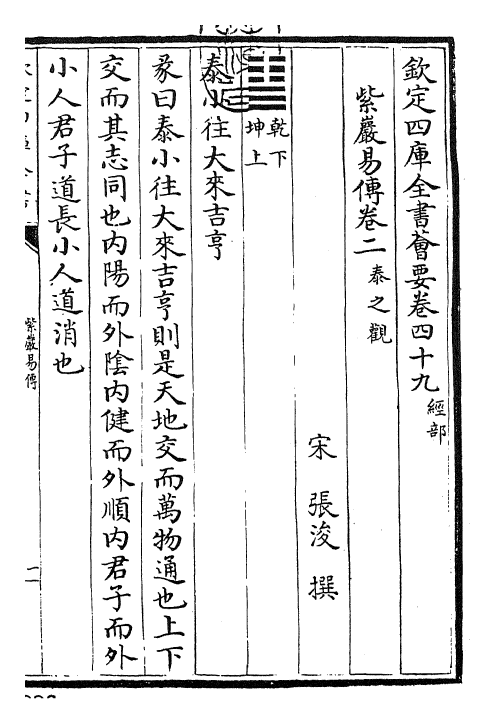 欽定四庫全書薈要卷四十九 經部
紫巖易傳卷二 泰之觀
宋 張浚 撰
乾下
坤上
泰小往大來吉亨
彖曰泰小往大來吉亨則是天地交而萬物通也上下
交而其志同也内陽而外陰内健而外順内君子而外
小人君子道長小人道消也
紫巖易傳
一